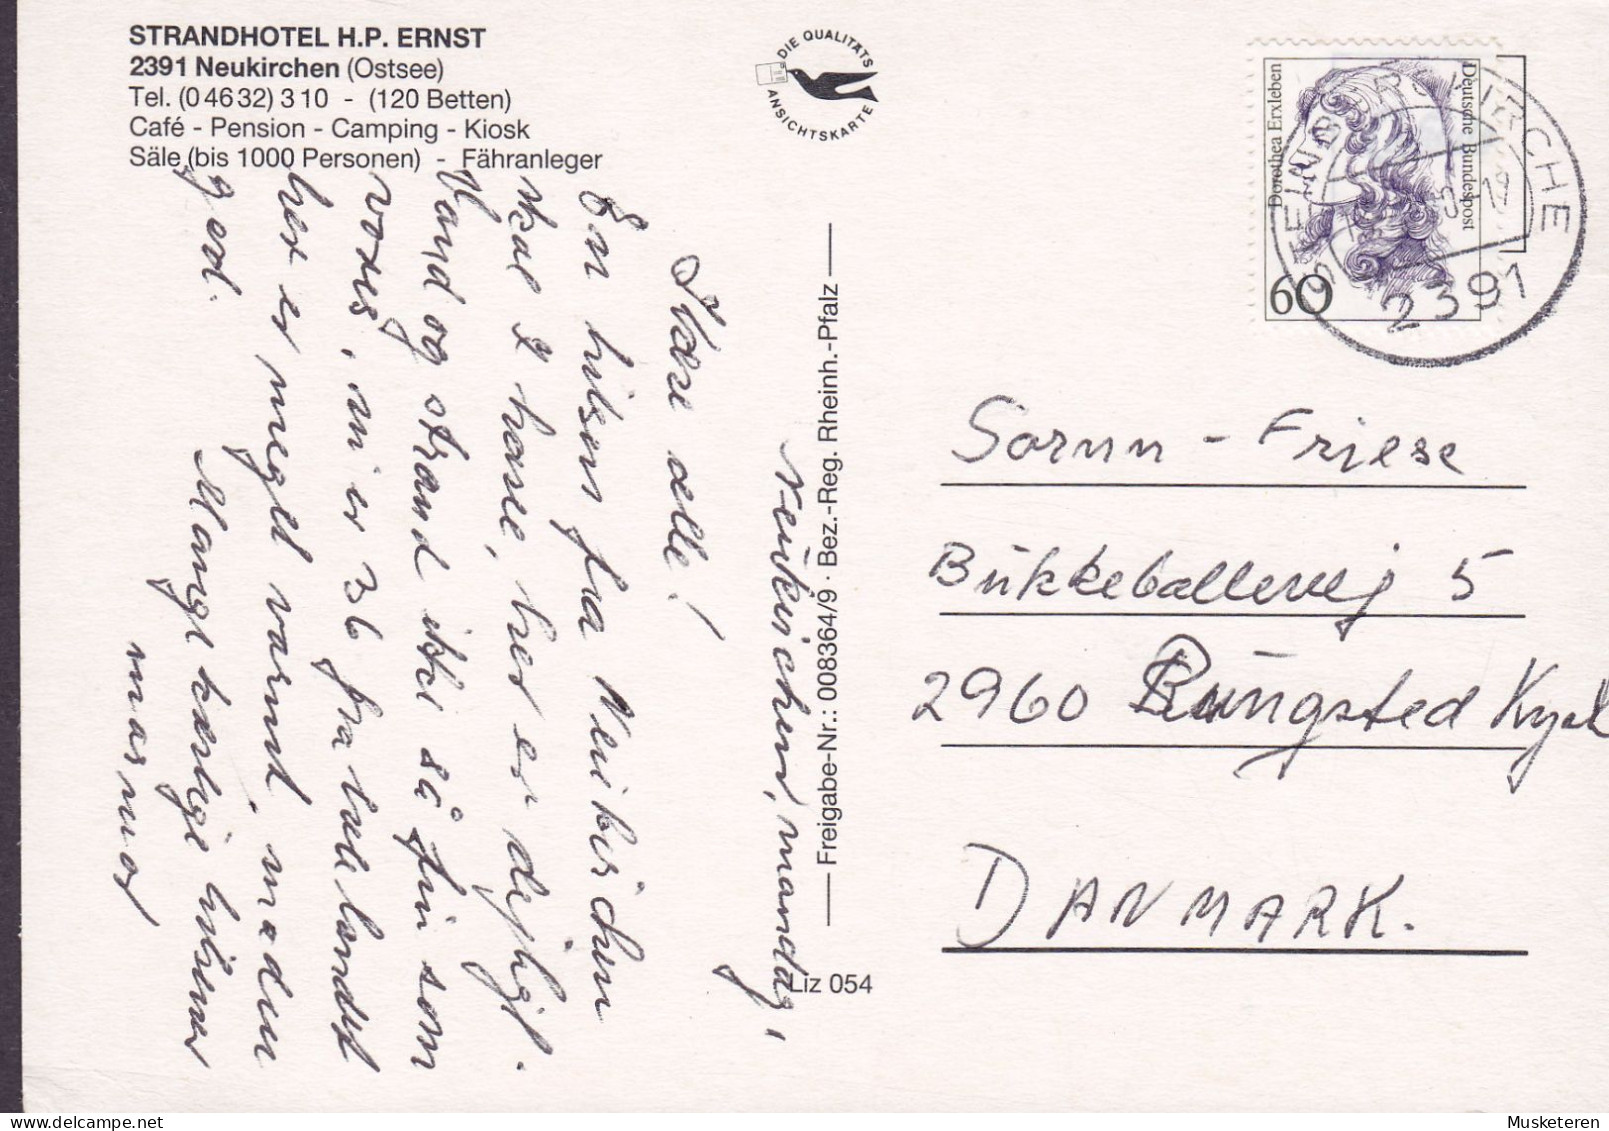 STRANDHOTEL H.P. ERNST
2391 Neukirchen (Ostsee)
Tel. (0 46 32) 3 10 - (120 Betten)
Café - Pension - Camping - Kiosk
Säle (bis 1000 Personen) - Fähranleger
DIE QUALITÄTS
ANSICHTSKARTE
Dorothea Erxleben
Deutsche Bundespost
60
2391
Neukirchen, mandag,
Kære alle!
En hilsen fra Neukirchen
skal I have, her er dejligt.
Vand og strand ikke så fin som
vores, mi er 36 fra hele landet
her er meget varmt, maden
god.
Mange kærlige hilsner
marmor
Freigabe-Nr.: 008364/9 · Bez.-Reg. Rheinh.-Pfalz
Liz 054
Sorunn - Friese
Bukkeballevej 5
2960 Rungsted Kyst
DANMARK.
Musketeren